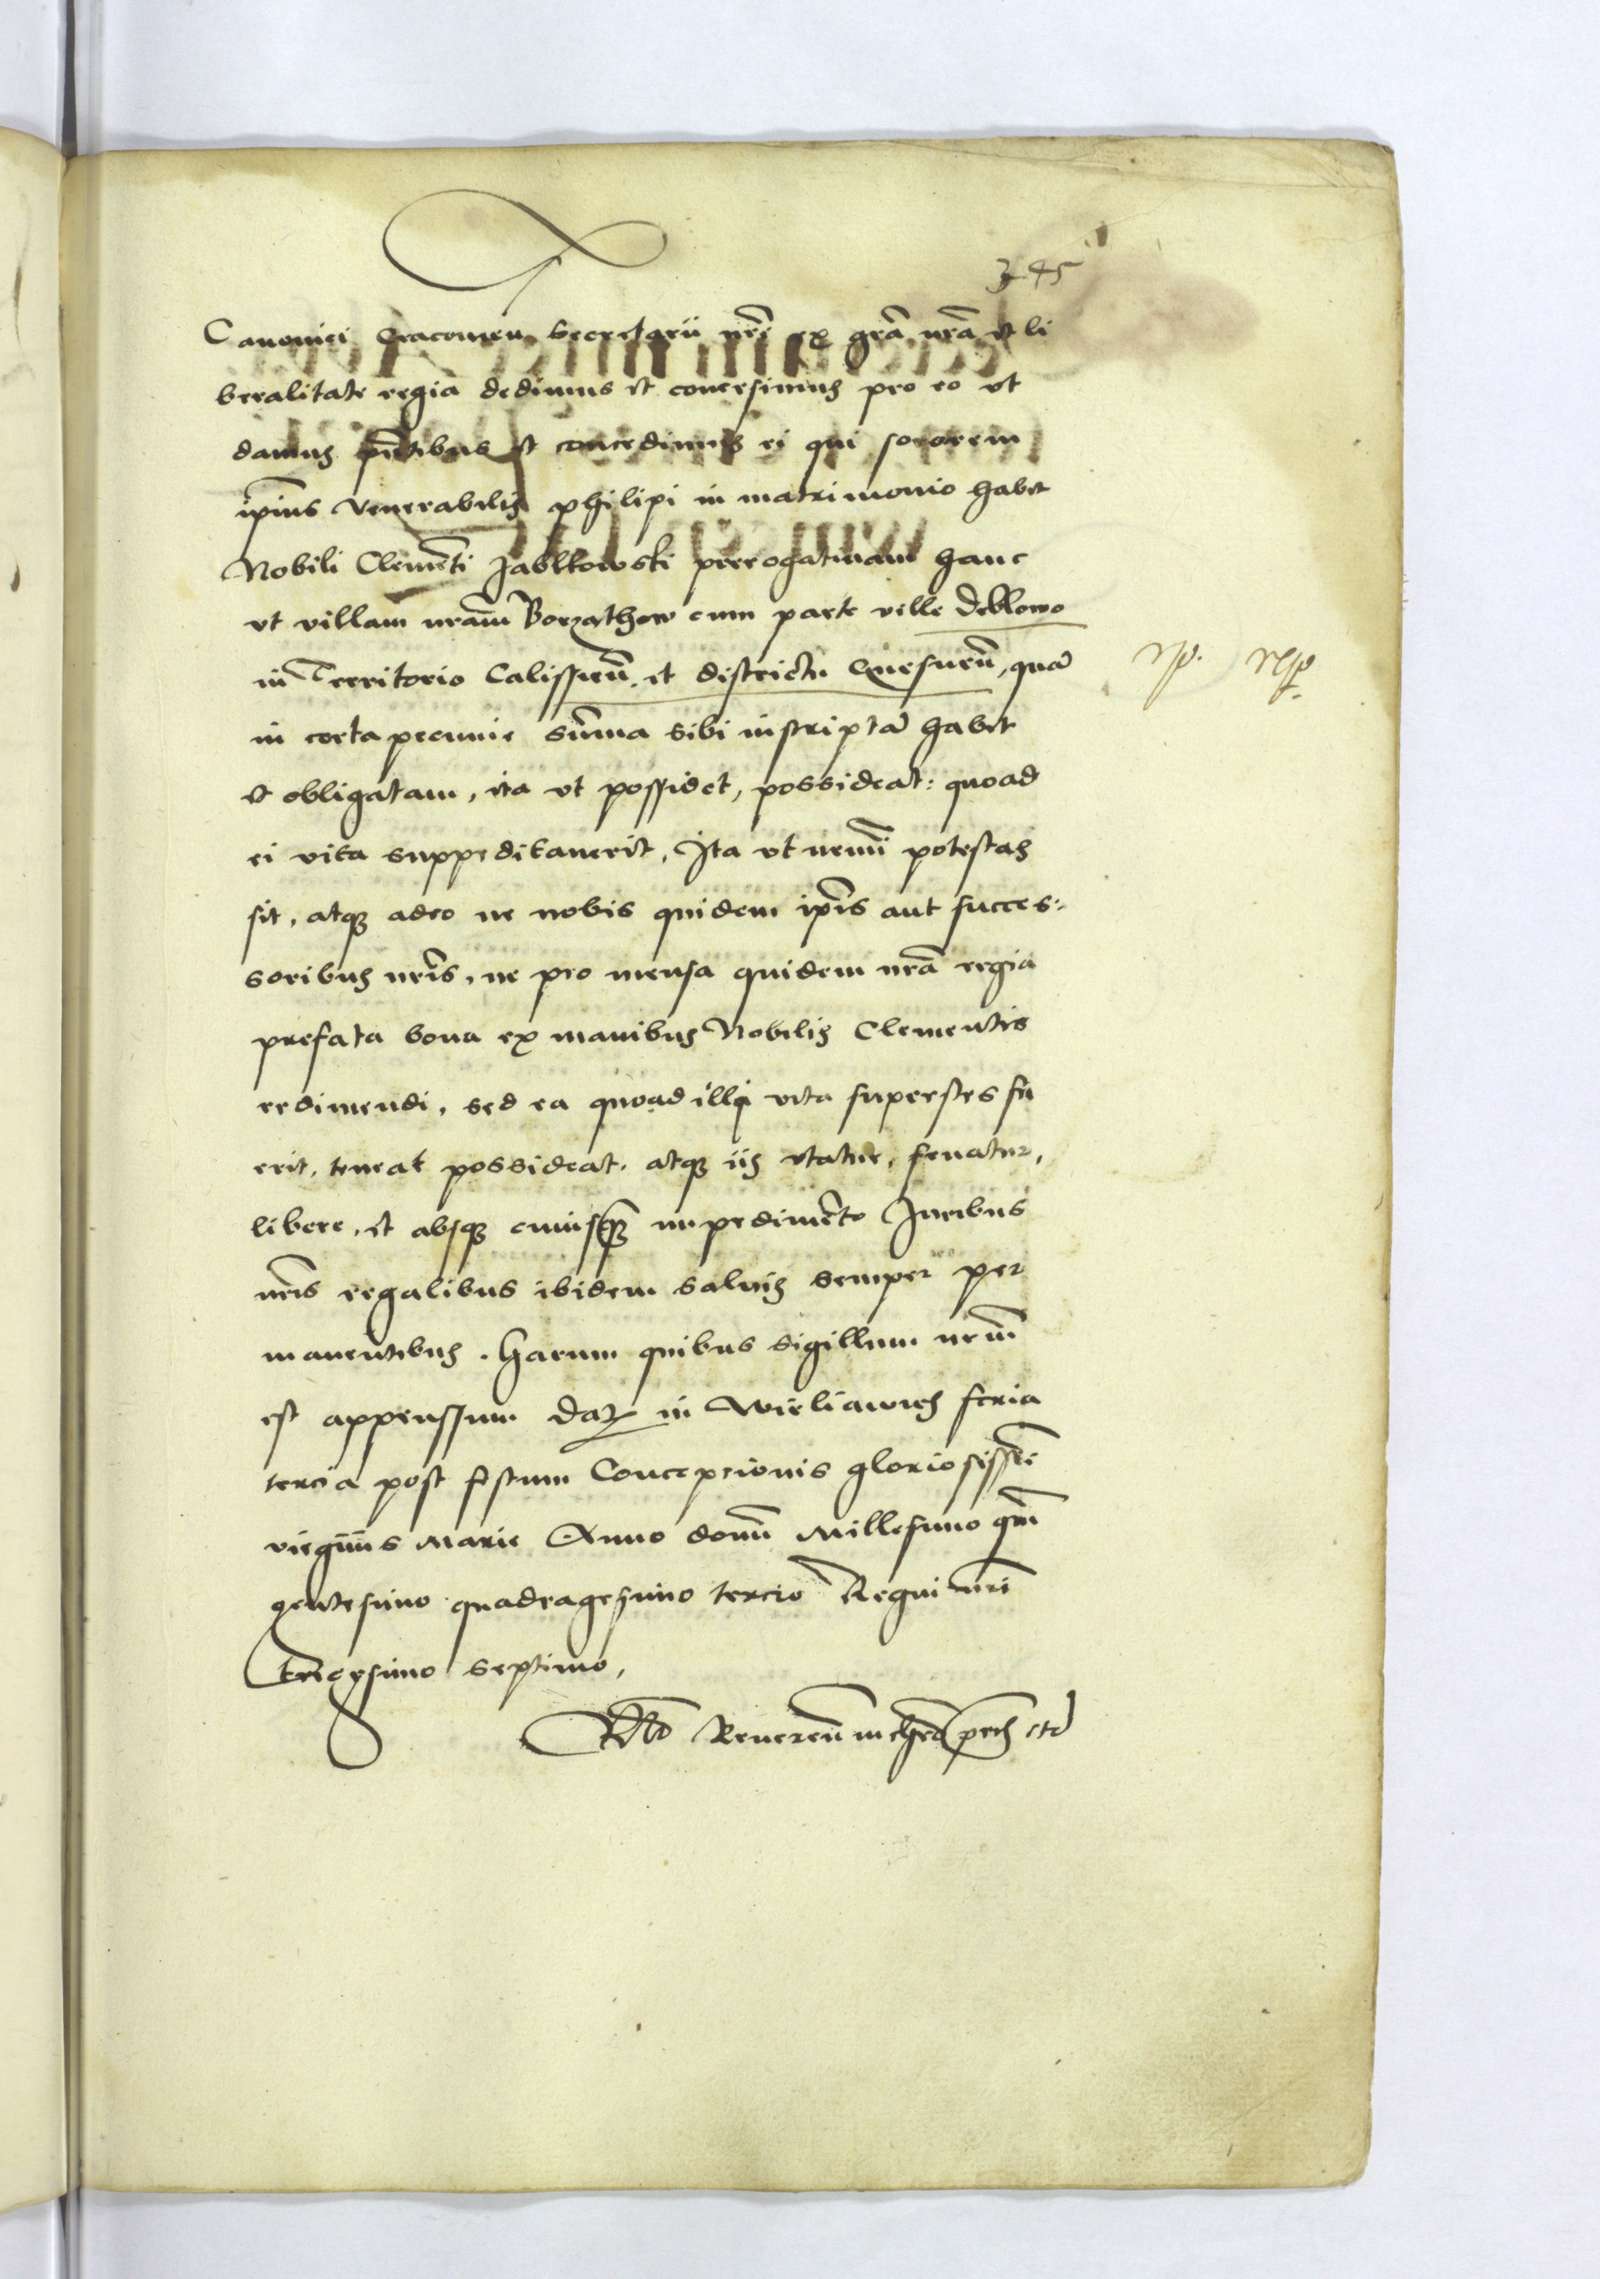 345
Canonici Cracovien secretarii nrĩ ex grã nrã et li
beralitate regia dedimus et concessimus pro eo ut
damus pñtibus et concedimus ei qui sororem
ipĩus venerabilis philipi in matrimonio habet
Nobili Clemẽti Jablkowski prerogatiuam hanc
vt villam nram̃ Borzathow cum parte ville Deblowo
in Territorio Calissieñ et districtu Gnesneñ, quã
in certa pecunie sum̃a sibi inscriptã habet
et obligatam, ita vt possidet, possideat: quoad
ei vita suppeditauerit, Ita vt nemĩ potestas
sit, atqȝ adeo ne nobis quidem ipĩs aut succes:
soribus nrĩs, ne pro mensa quidem nrã regia
prefata bona ex manibus Nobilis Clementis
redimendi, sed ea quoad illi vita superstes fu
erit, teneat possideat, atqȝ iis vtatur, fruatur,
libere, et absqȝ cuiusqȝ impedimẽto Juribus
nrĩs regalibus ibidem saluis semper per
manentibus. Harum quibus sigillum nrum̃
est appenssum Datȝ in Wieliamies feria
tercia post festum Concepcionis gloriosissĩe
virginis Marie Anno domĩ Millesimo quĩ
gentesimo quadragesimo tercio Regni nrĩ
tricesimo septimo,
Rlo Reuereñ in chrõ prĩs etc